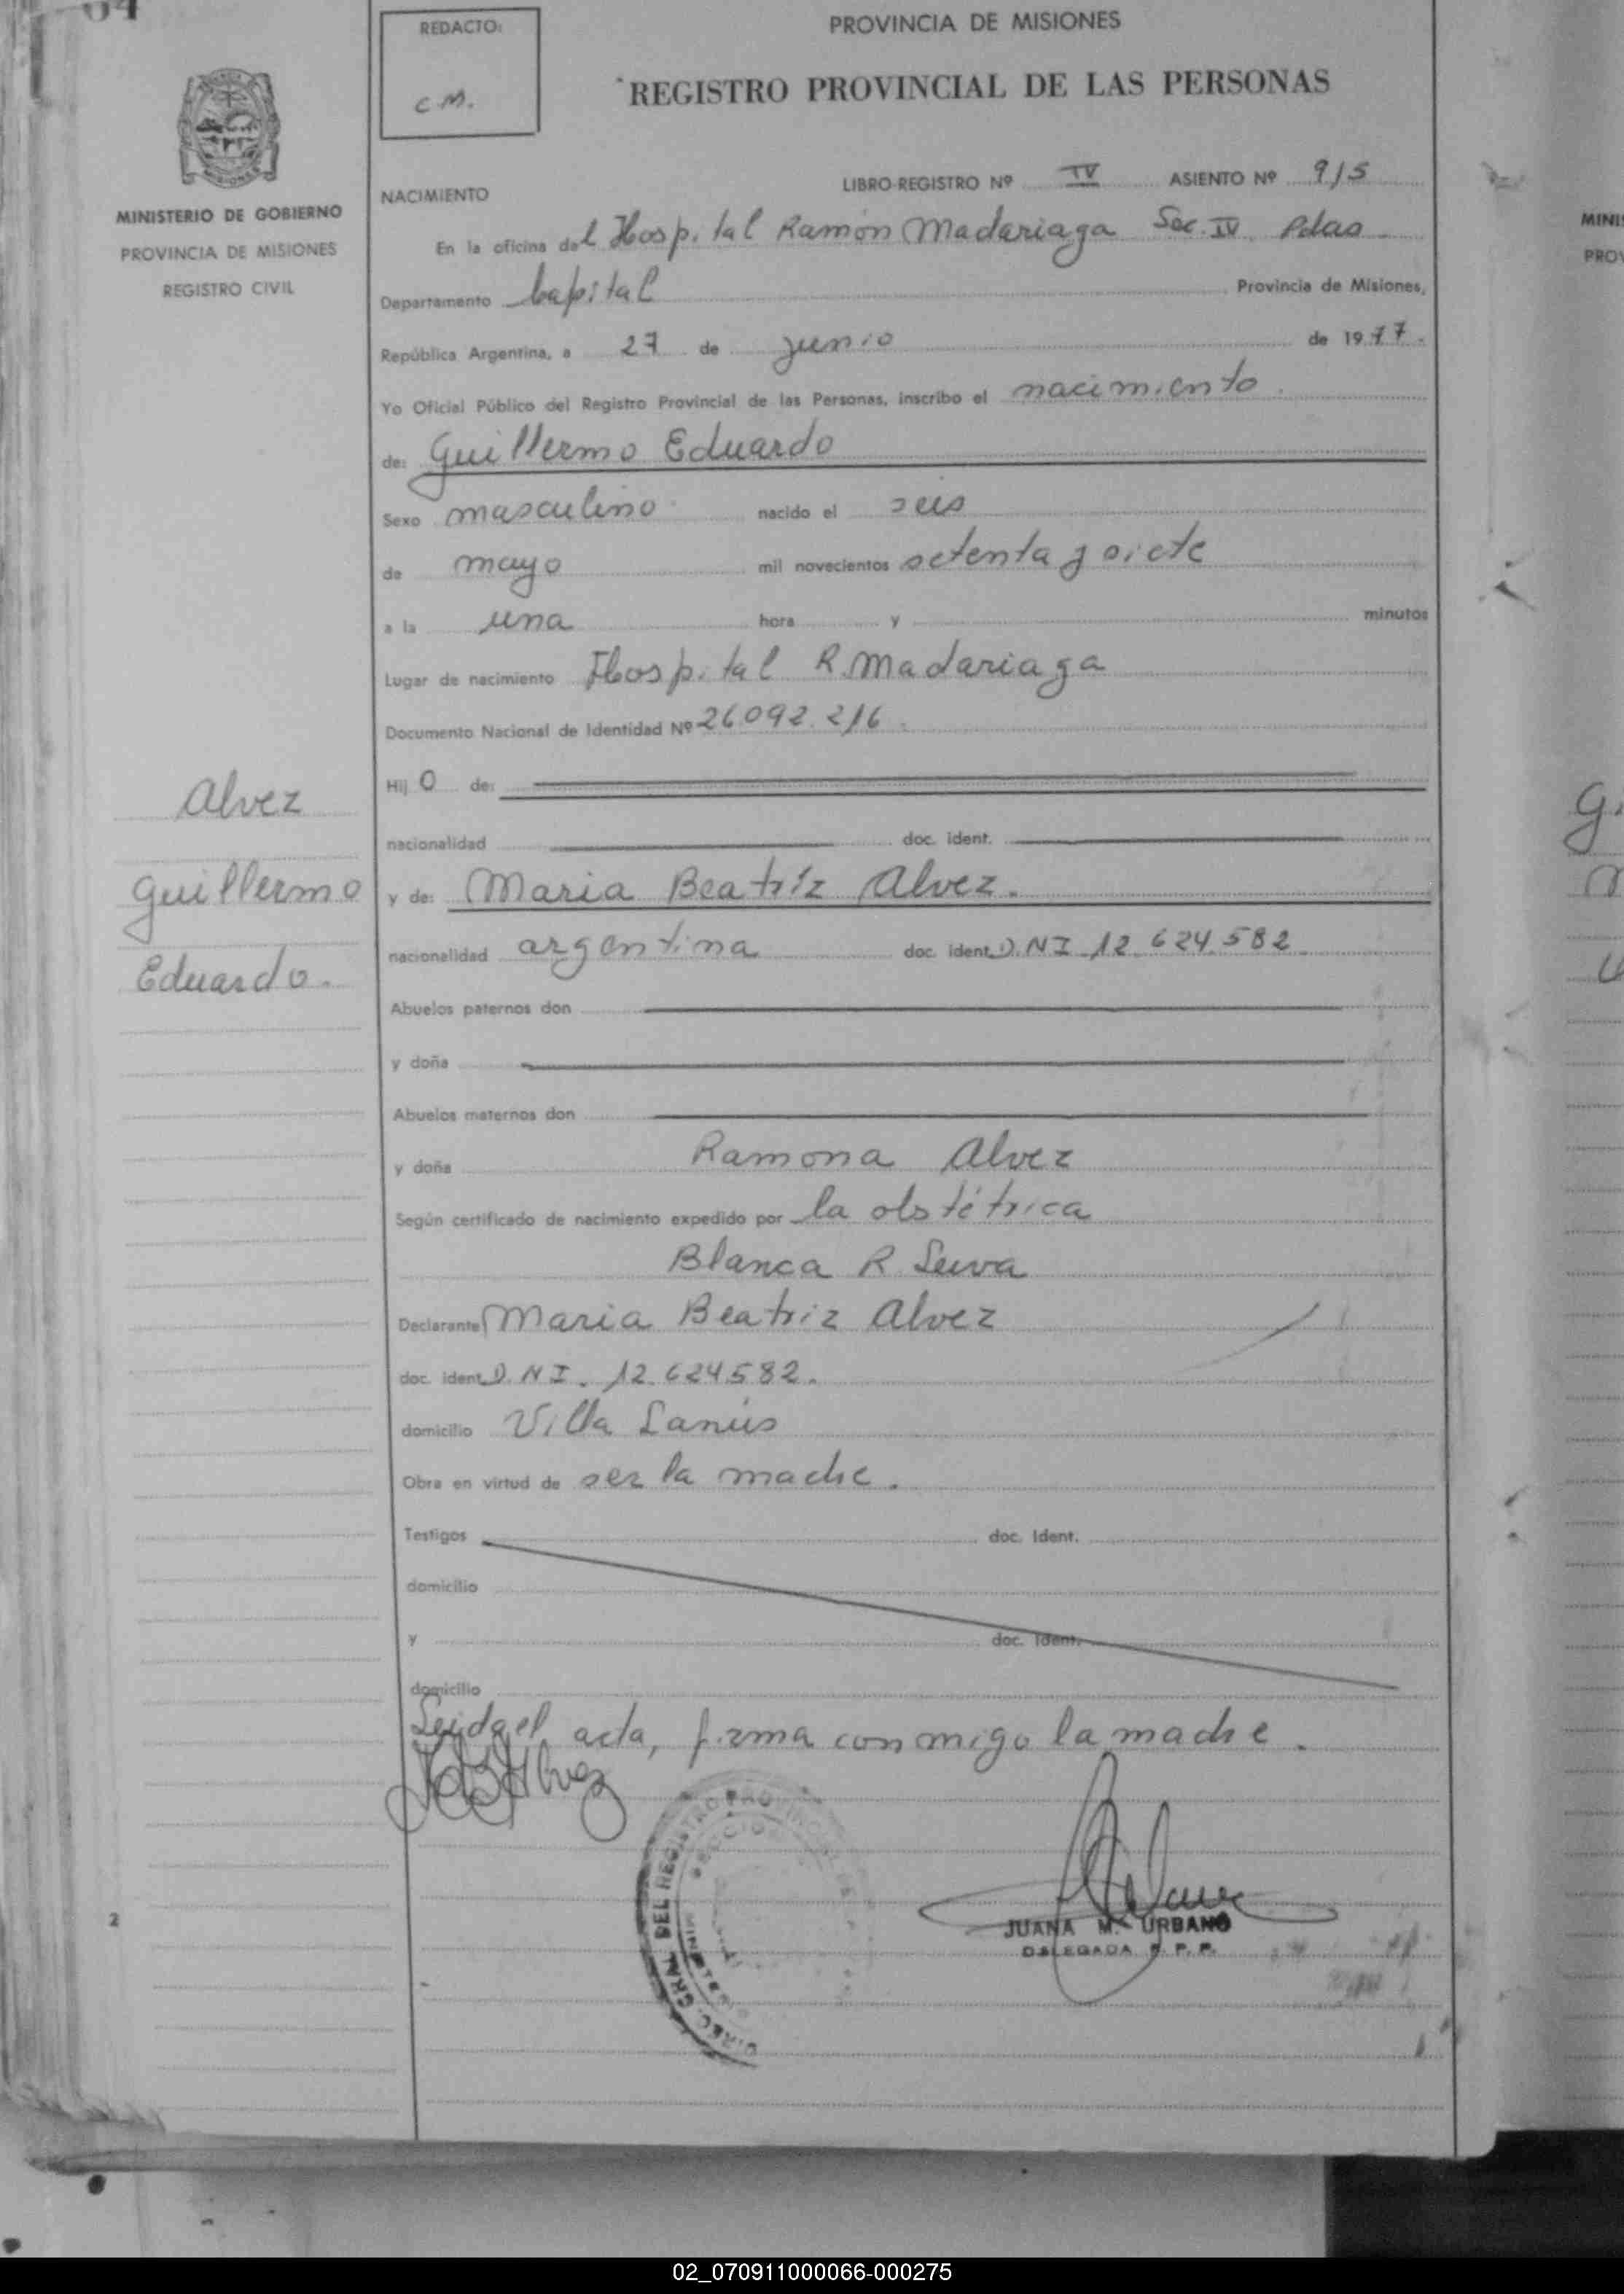 64
REDACTO:
C.M.
PROVINCIA DE MISIONES
REGISTRO PROVINCIAL DE LAS PERSONAS
MINISTERIO DE GOBIERNO
PROVINCIA DE MISIONES
REGISTRO CIVIL
NACIMIENTO LIBRO-REGISTRO Nº IV ASIENTO Nº 915
En la oficina del Hospital Ramón Madariaga Sec. IV Pdas
Departamento Capital Provincia de Misiones,
República Argentina, a 27 de junio de 1977.
Yo Oficial Público del Registro Provincial de las Personas, inscribo el nacimiento
de: Guillermo Eduardo
Sexo masculino nacido el seis
de mayo mil novecientos setenta y siete
a la una hora y minutos
Lugar de nacimiento Hospital R. Madariaga
Documento Nacional de Identidad Nº 26.092.216.
Hij o de:
nacionalidad doc. ident.
y de: Maria Beatriz Alvez.
nacionalidad argentina doc. ident. D.N.I 12.624.582
Abuelos paternos don
y doña
Abuelos maternos don
y doña Ramona Alvez
Según certificado de nacimiento expedido por la obstétrica
Blanca R
Declarante Maria Beatriz Alvez
doc. ident. D.N.I. 12.624582.
domicilio Villa Lanús
Obra en virtud de ser la madre.
Testigos doc. Ident.
domicilio
y doc. Ident.
domicilio
Leida el acta, firma conmigo la madre.
Alvez
Guillermo
Eduardo.
DIREC. GRAL. DEL REGISTRO PROVINCIAL
JUANA M. URBANO
DELEGADA R. P. P.
2
MINIS
PROV
02_070911000066-000275